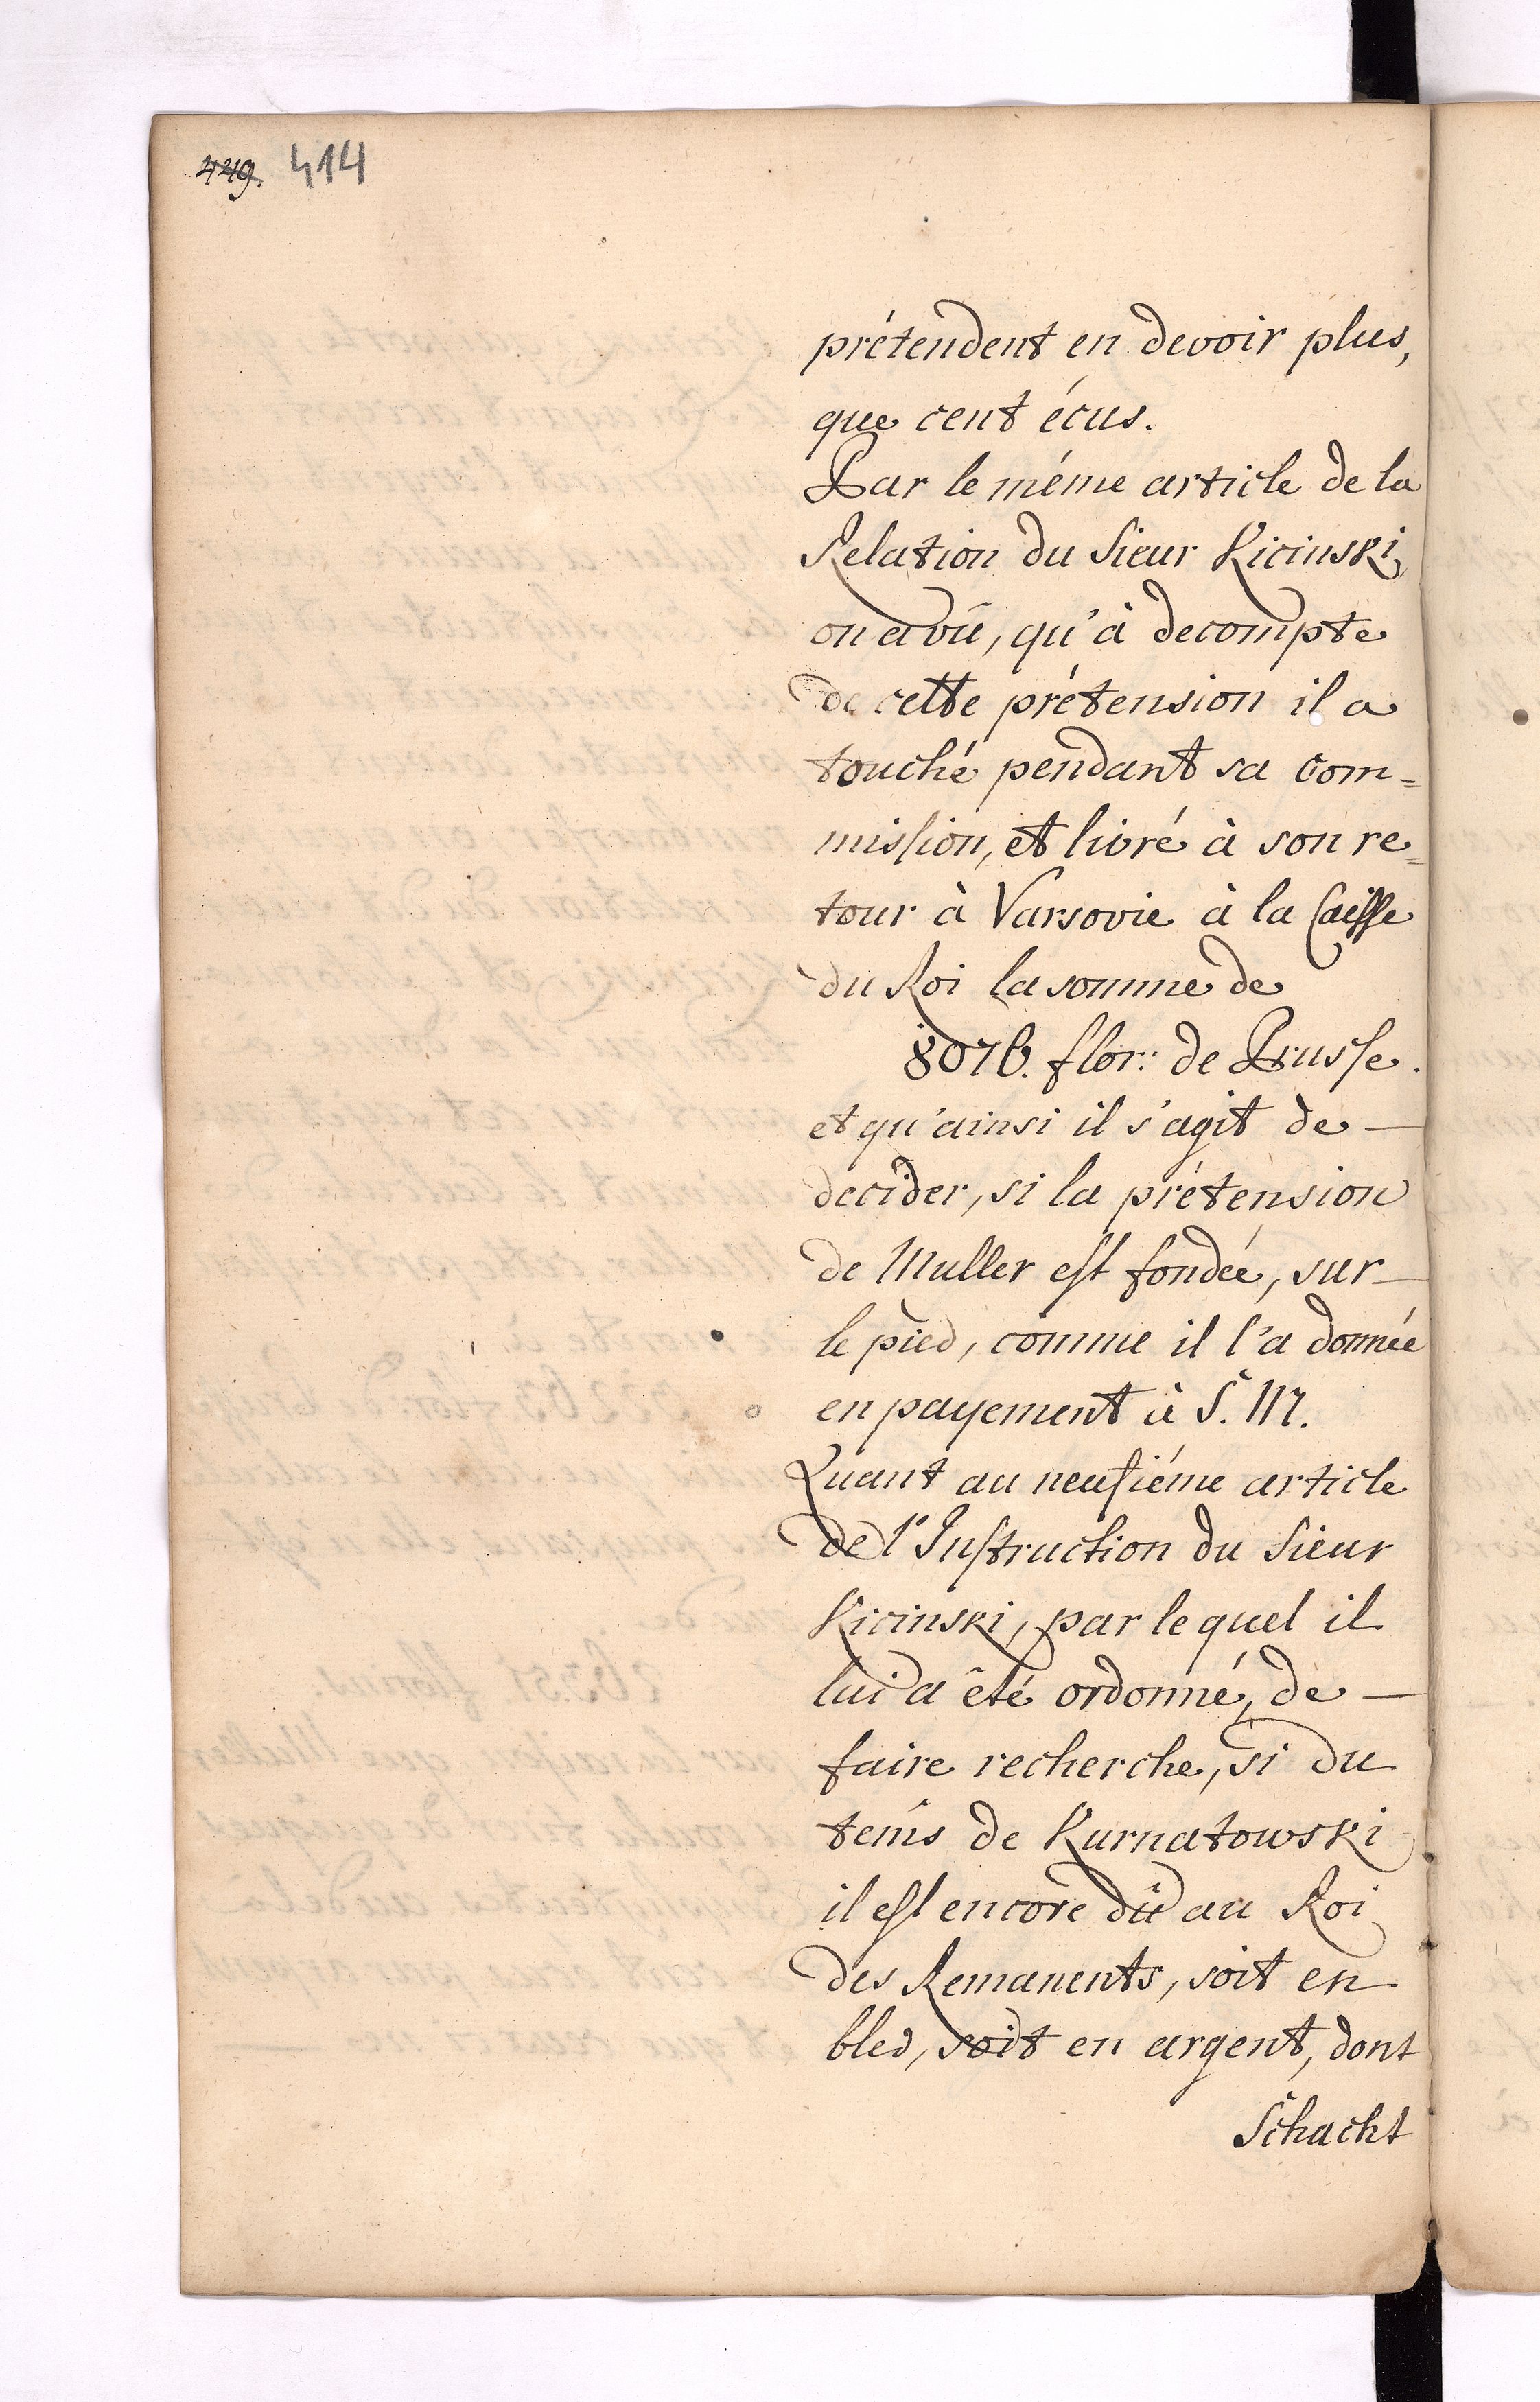 449. 414
prétendent en devoir plus,
que cent écus.
Par le même article de la
Relation du Sieur Kicinski,
on a vû, qu'à decompte
de cette prétension il a
touché pendant sa com=
mission, et livré à son re=
tour à Varsovie à la Caisse
du Roi la somme de
8076. flor: de Prusse.
et qu'ainsi il s'agit de —
decider, si la prétension
de Muller est fondée, sur —
le pied, comme il l'a donnée
en payement à S. M.
Quant au neufiéme article
de l'Instruction du Sieur
Kicinski, par le quel il
lui a êté ordonné, de —
faire recherche, si du
tems de Kurnatowski
il est encore dû au Roi
des Remanents, soit en
bled, soit en argent, dont
Schacht